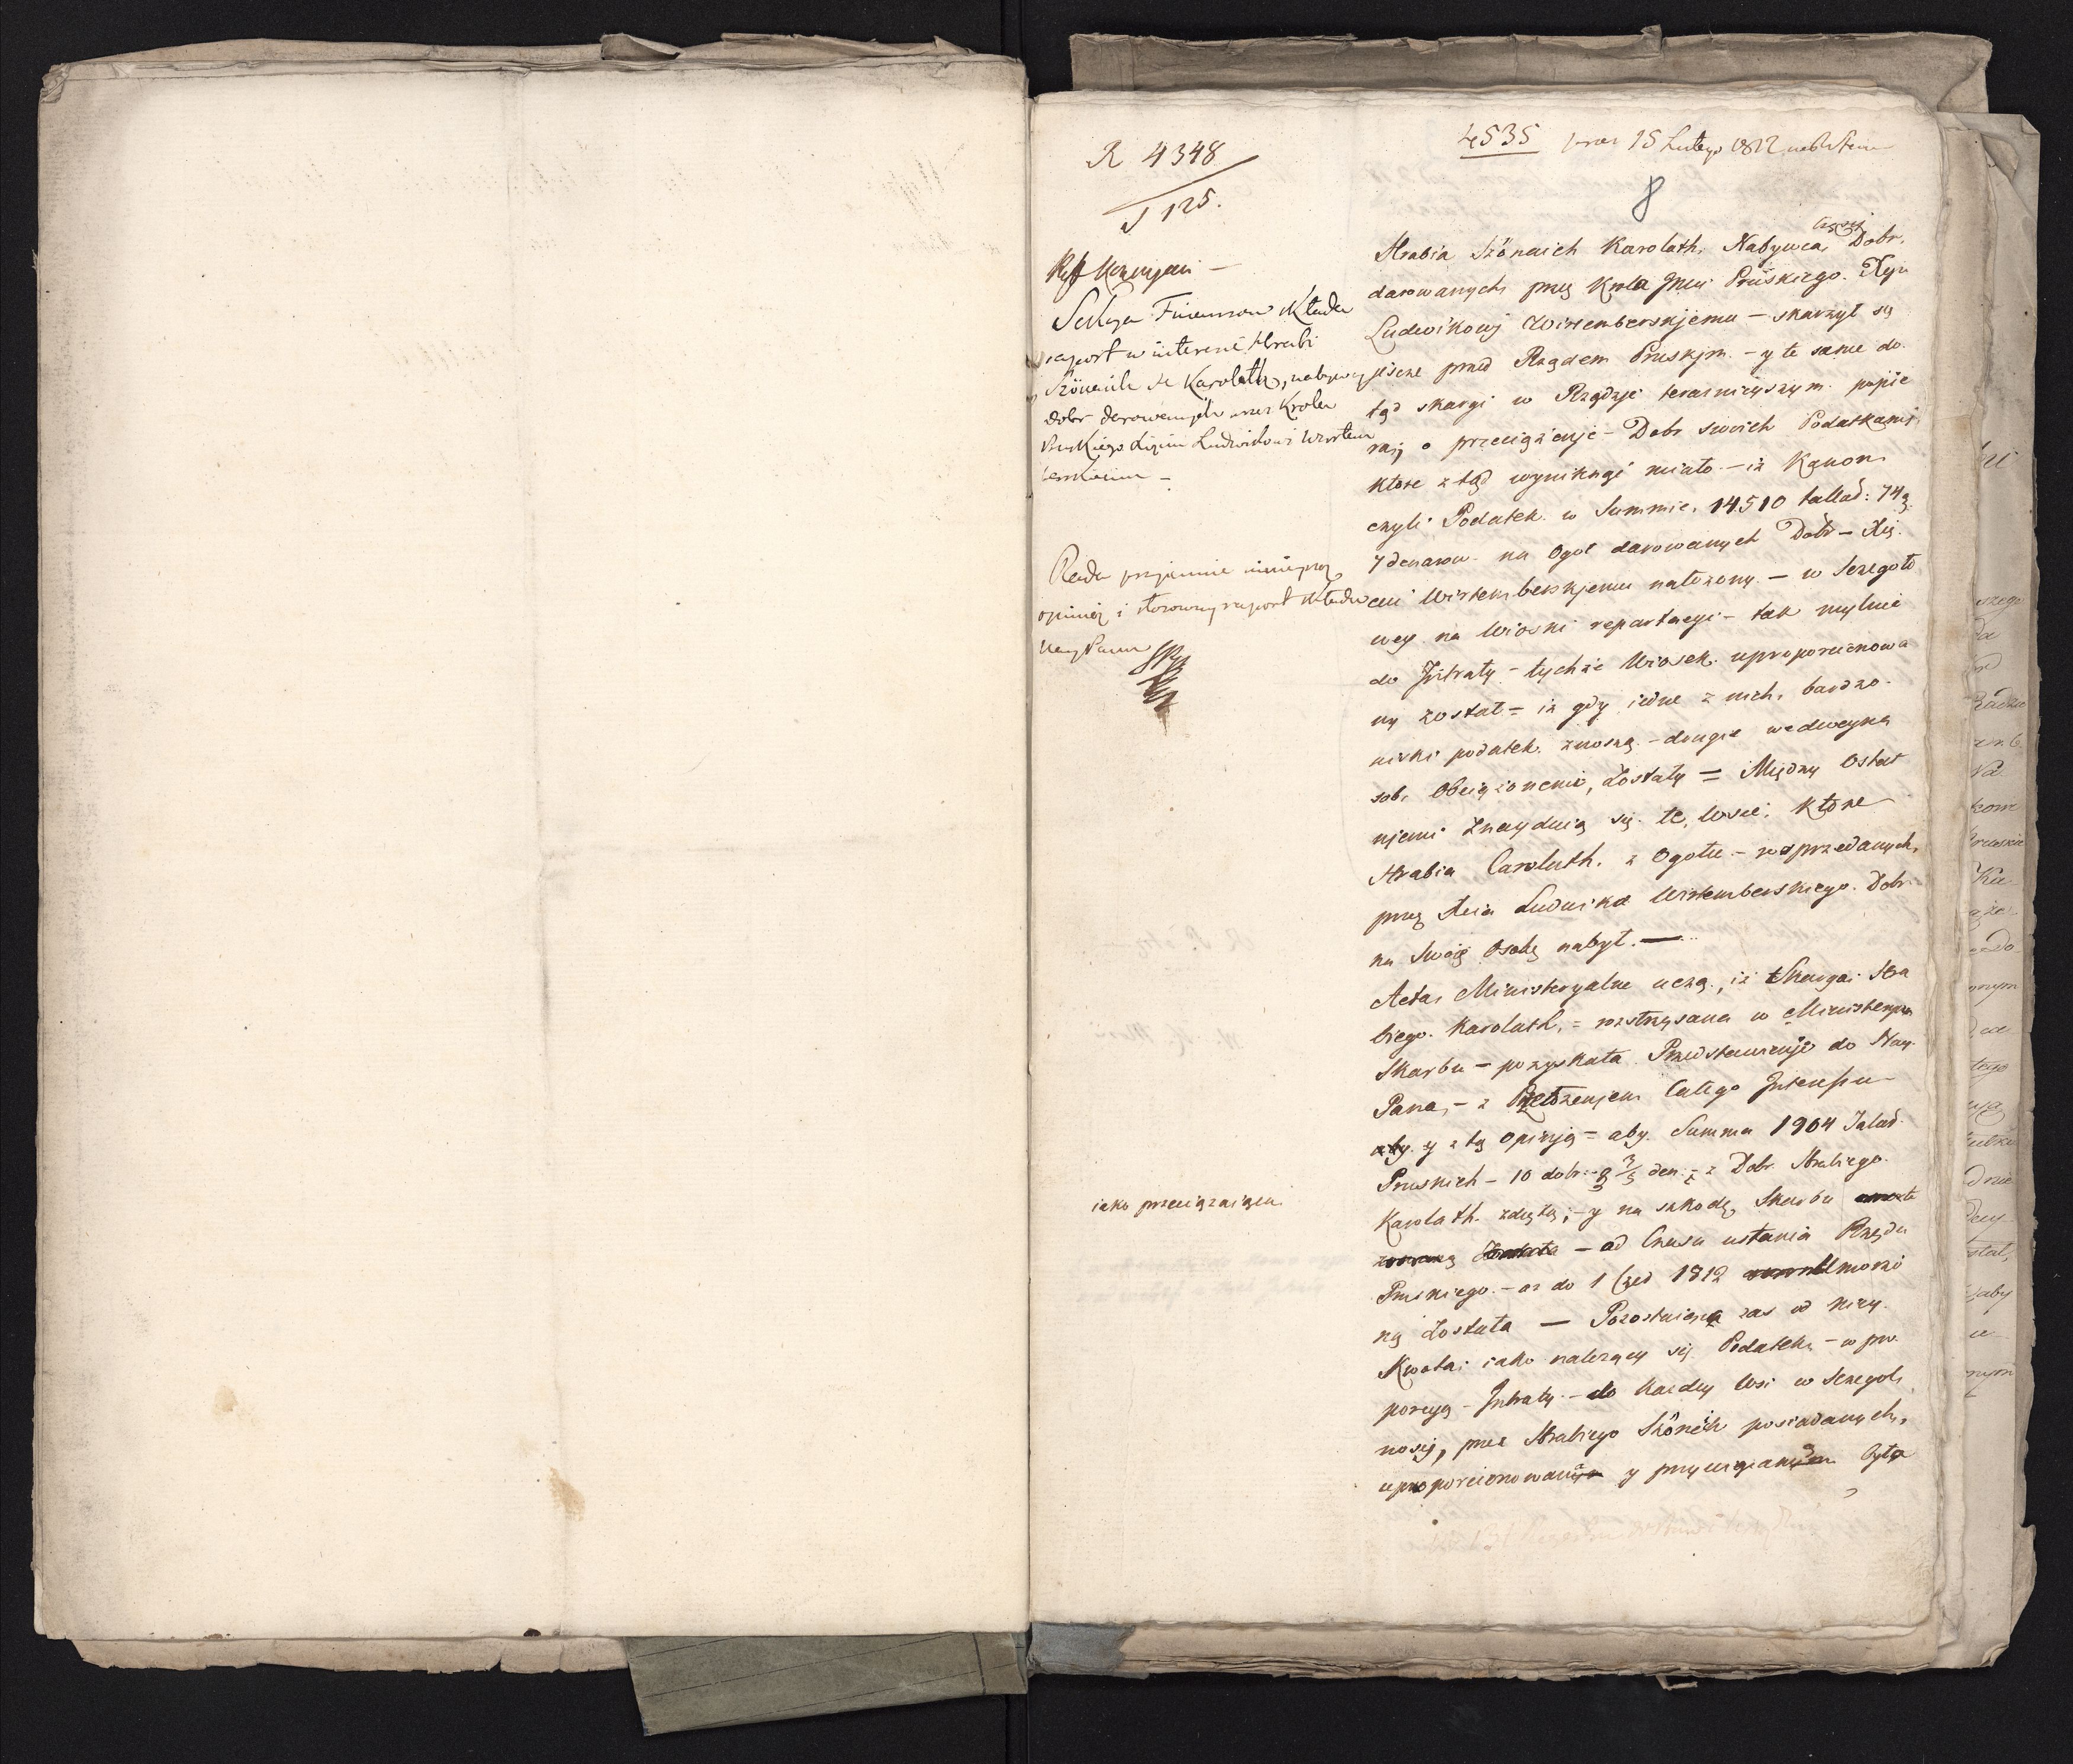 R 4348
J 125.
4535 15 Lutego 1812
8
Sekcya Finansow składa
raport w interesie Hrabi
Szönaich de Karolath, nabywcy
dobr darowanych przez Krola
Pruskiego Xięciu Ludwikowi Wirtem
berskiemu —
Rada przyimuie ninieyszą
opinią i stosowny raport składa
Nayj. Panu
iako przeciążaiąca
części
Hrabia Szönaich Karolath, Nabywca Dobr,
darowanych przez Krola Jmci Pruskiego. Xyu
Ludwikowj Wirtemberskjemu — skarżył się
jescze przed Rządem Pruskjm — y te same do
tąd skargi w Rządzje teraznieyszym popie
ra; o przeciążenje — Dobr swoich Podatkami
ktore ztąd wyniknąć miało — iż Kanon
czyli Podatek w Summie 14510 tallar: 74
7 denarow na Ogoł darowanych Dobr — Xię
ciu Wirtemberskjemu nałożony — w Szczegoło
wey na Wioski repartycyi — tak mylnie
do Jntraty — tychże Wiosek uproporcionowa
ny został = iż gdy iedne z nich, bardzo
niski podatek znoszą — drugie we dwoynasob
Obciążonemi Zostały = Między Ostat
njemi Znayduią się te, Wsie, Ktore
Hrabia Carolath z Ogołu — rozprzedanych,
przez Xcia Ludwika Wirtemberskiego Dobr
na Swoię Osobę nabył. —
Acta Ministeryalne uczą, iż Skarga Hra
biego Karolath, = roztrząsana w Ministeryum
Skarbu — pozyskała Przedstawienje do Nay
Pana, — z Przełożenjem Całego Jnteressu
y z tą Opinją = aby Summa 1904 Talar
Pruskich — 10 dobr: 8 3/5 den: — z Dobr Hrabiego
Karolath zdięta; — y na szkodę Skarbu
— od Czasu ustania Rządu
Pruskiego — aż do 1 Czer 1812 Umorzo
ną Zostata — Pozostaiąca zas od niey
Kwota iako należący się Podatek — w pro
porcyą — Jntraty — do każdey Wsi w Szczegol
nosci, przez Hrabiego Szöneich posiadanych,
uproporcionowaną y przywiązaną była